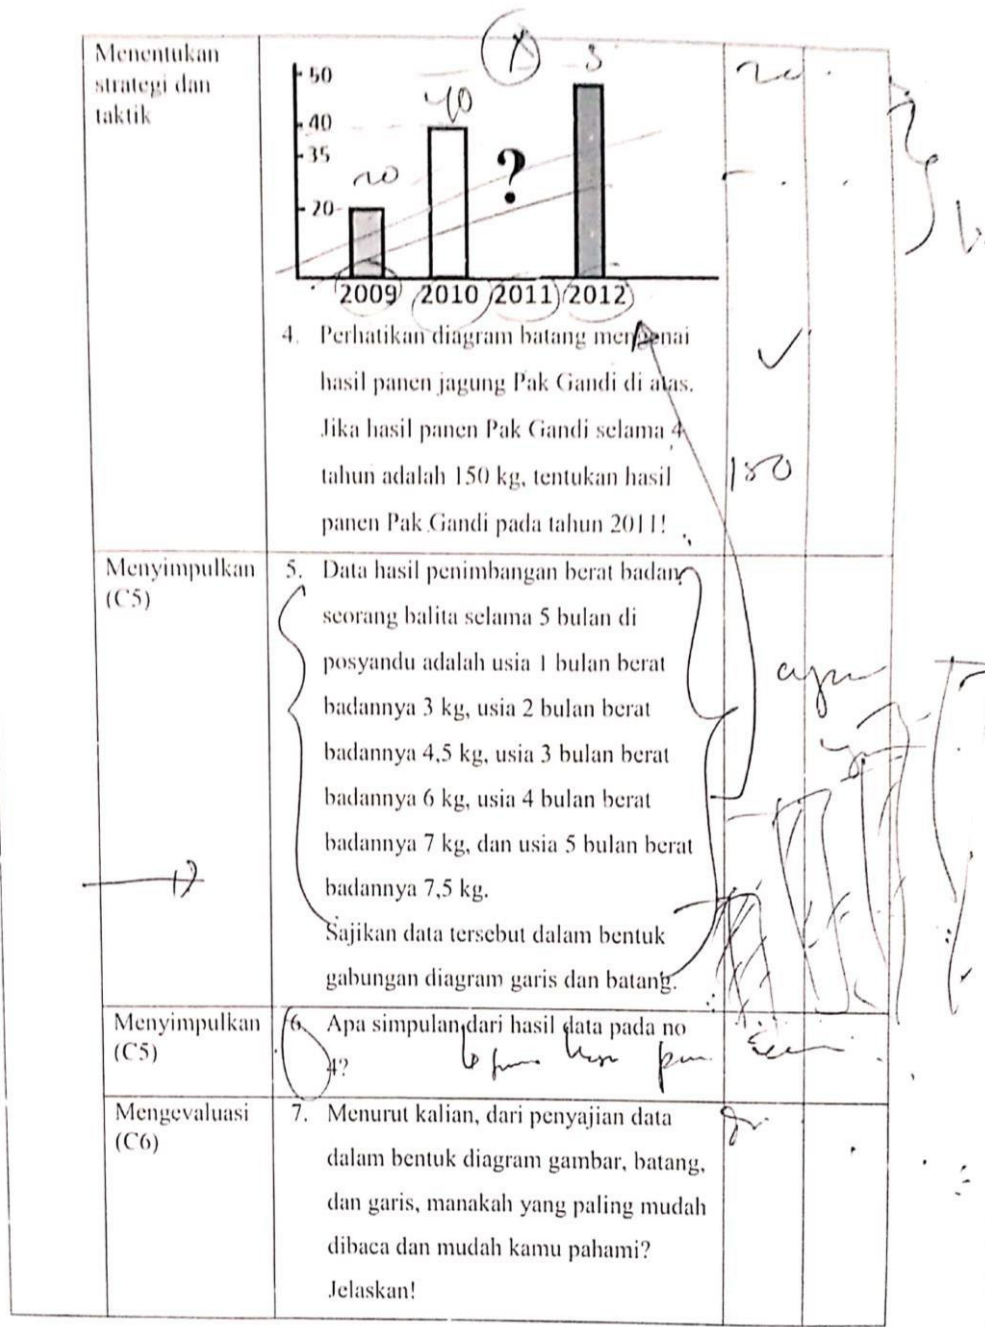 Menentukan
strategi dan
taktik
50
40
35
20
40
20
?
2009 2010 2011 2012
4. Perhatikan diagram batang mengenai
hasil panen jagung Pak Gandi di atas.
Jika hasil panen Pak Gandi selama 4
tahun adalah 150 kg, tentukan hasil
panen Pak Gandi pada tahun 2011!
150
Menyimpulkan
(C5)
5. Data hasil penimbangan berat badan
seorang balita selama 5 bulan di
posyandu adalah usia 1 bulan berat
badannya 3 kg, usia 2 bulan berat
badannya 4,5 kg, usia 3 bulan berat
badannya 6 kg, usia 4 bulan berat
badannya 7 kg, dan usia 5 bulan berat
badannya 7,5 kg.
Sajikan data tersebut dalam bentuk
gabungan diagram garis dan batang.
Menyimpulkan
(C5)
6. Apa simpulan dari hasil data pada no
4?
Mengevaluasi
(C6)
7. Menurut kalian, dari penyajian data
dalam bentuk diagram gambar, batang,
dan garis, manakah yang paling mudah
dibaca dan mudah kamu pahami?
Jelaskan!